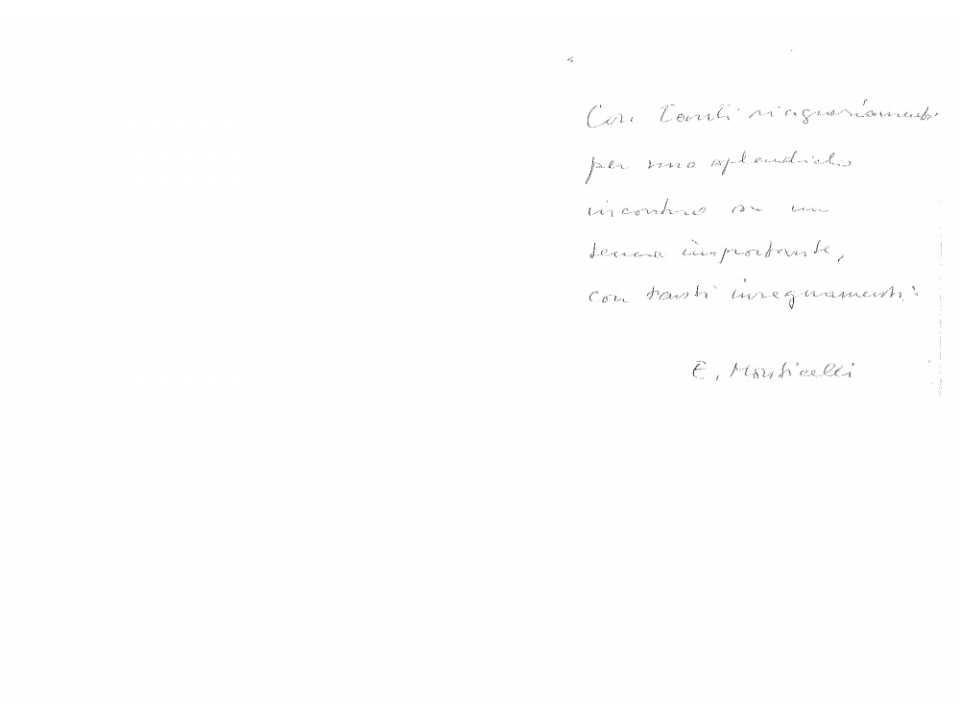 Con tanti ringraziamenti
per uno splendido
incontro su un
tema importante,
con tanti insegnamenti!
E. Monticelli